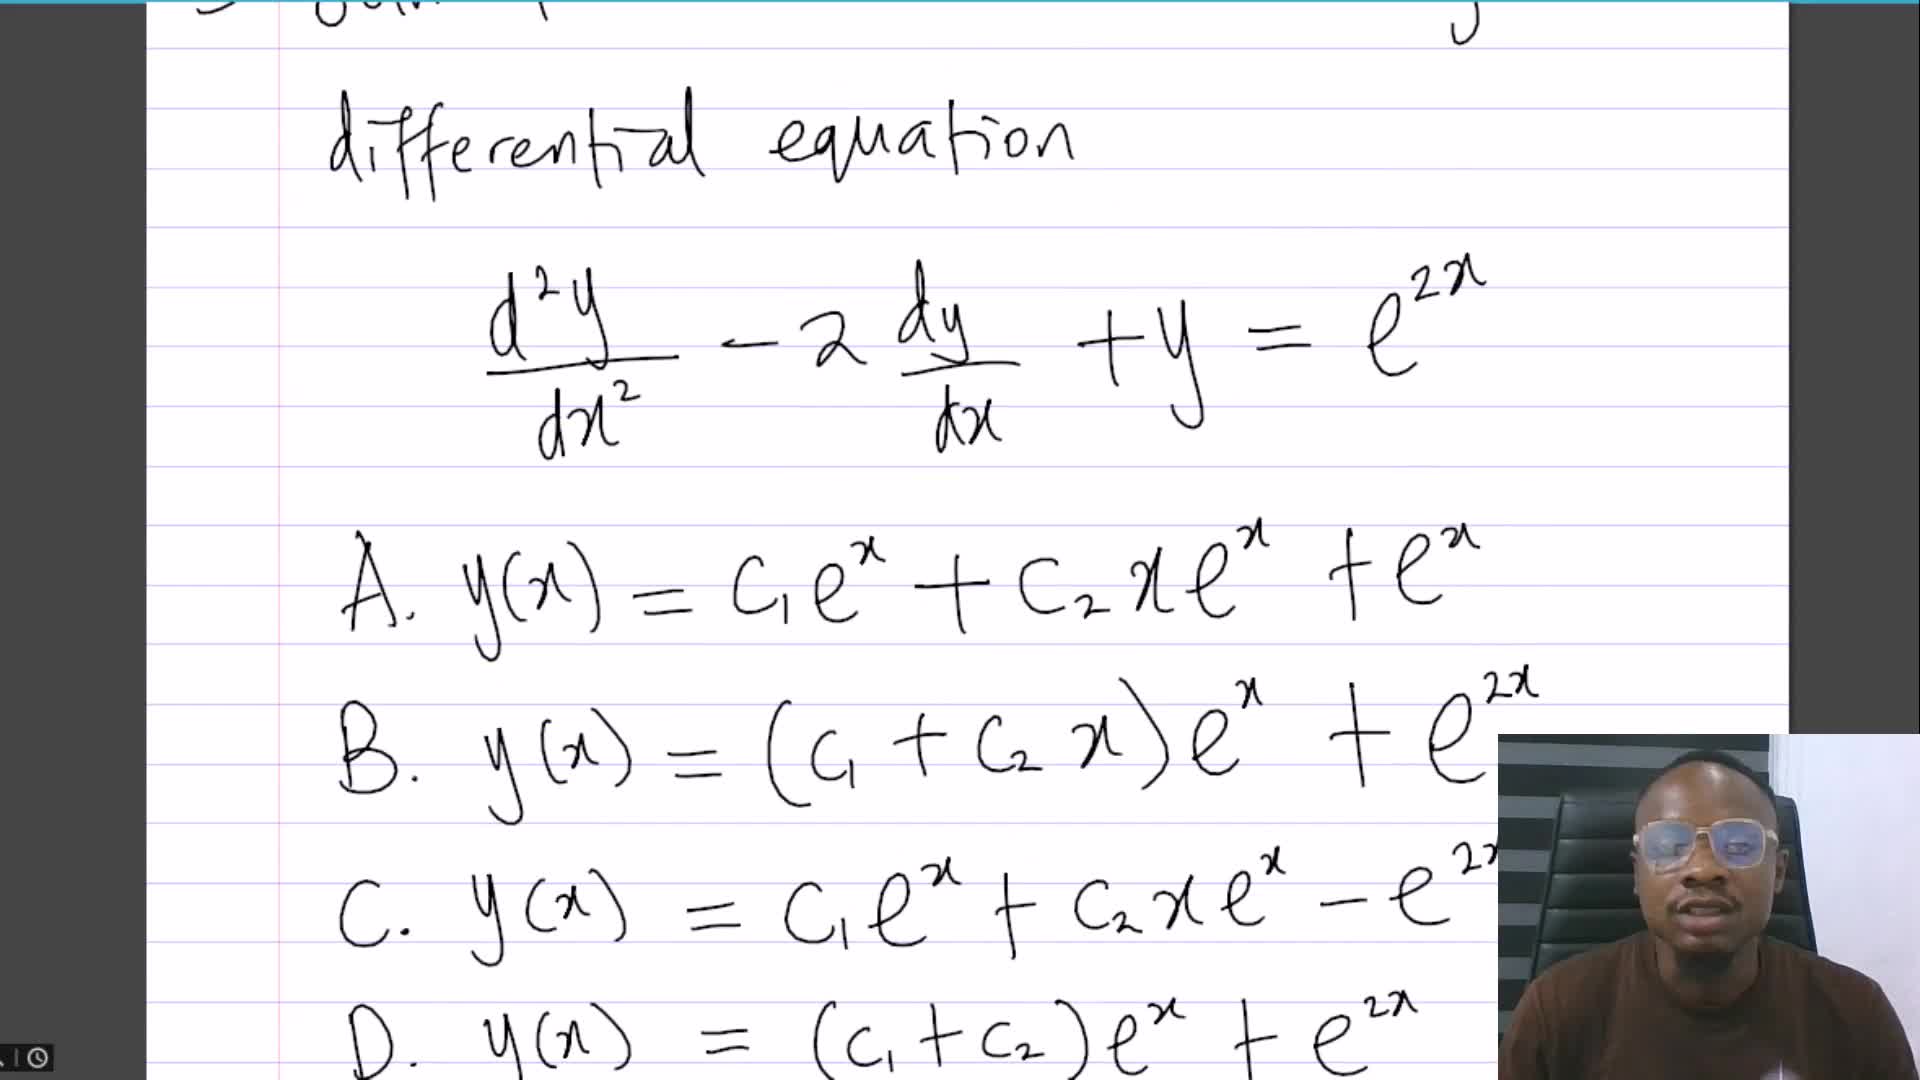 differential equation
d²y/dx² - 2 dy/dx + y = e^{2x}
A. y(x) = C₁e^x + C₂xe^x + e^x
B. y(x) = (C₁ + C₂x)e^x + e^{2x}
C. y(x) = C₁e^x + C₂xe^x - e^{2x}
D. y(x) = (C₁ + C₂)e^x + e^{2x}